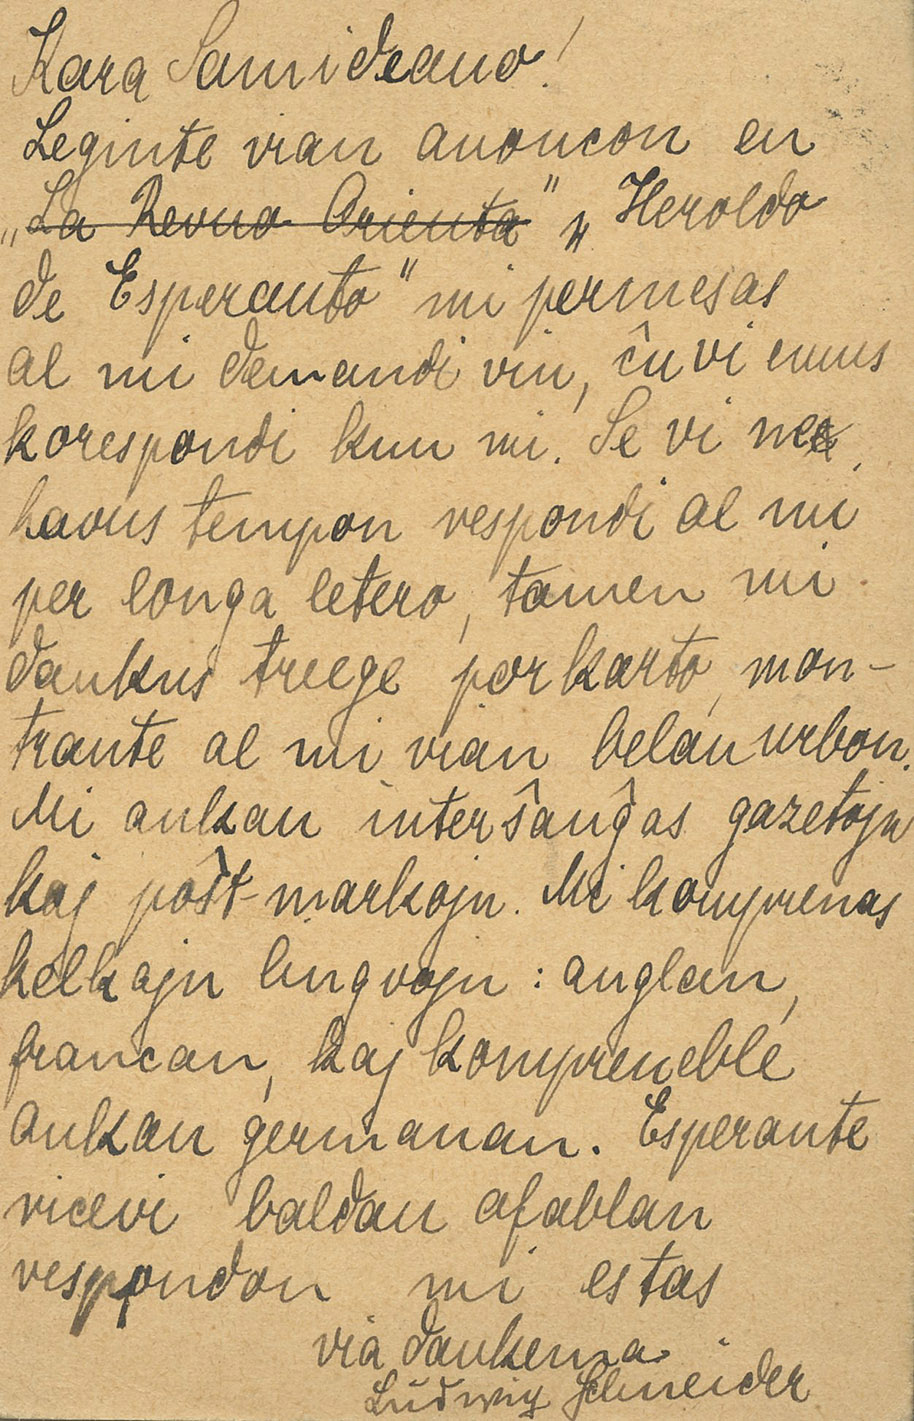 Kara Samideano!
Leginte vian anoncon en
„La Revuo Orienta" „Heroldo
de Esperanto" mi permesas
al mi demandi vin, ĉu vi emus
korespondi kun mi. Se vi ne
havus tempon respondi al mi
per longa letero, tamen mi
dankus treege por karto, mon-
trante al mi vian belan urbon.
Mi ankau interŝanĝas gazetojn
kaj poŝt-markojn. Mi komprenas
kelkajn lingvojn: anglan,
francan, kaj kompreneble
ankau germanan. Esperante
ricevi baldau afablan
respondon mi estas
via dankema
Ludwig Schneider